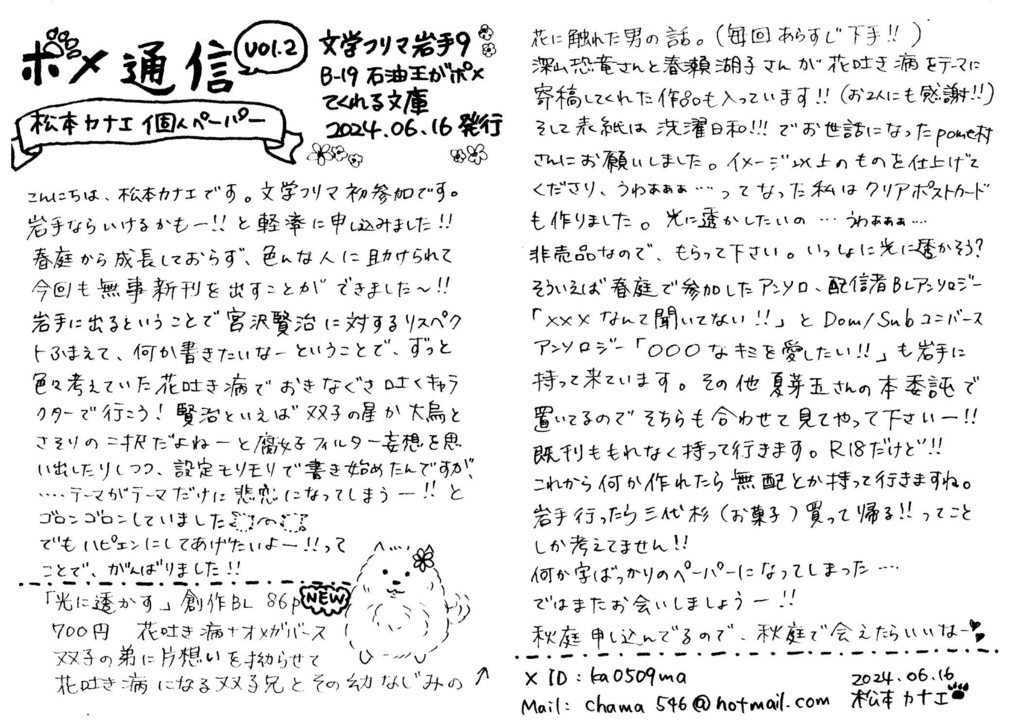 ポメ通信
vol.2
松本カナエ 個人ペーパー
文学フリマ岩手9
B-19 石油王がポメ
てくれる文庫
2024.06.16発行
こんにちは、松本カナエです。文学フリマ初参加です。
岩手ならいけるかもー!!と軽率に申し込みました!!
春庭から成長しておらず、色んな人に助けられて
今回も無事新刊を出すことができました〜!!
岩手に出るということで宮沢賢治に対するリスペク
トふまえて、何か書きたいなーということで、ずっと
色々考えていた花吐き病でおきなぐさ吐くキャラ
クターで行こう!賢治といえば双子の星か大烏と
さそりの二択だよねーと腐女子フィルター妄想を思
い出したりしつつ、設定モリモリで書き始めたんですが、
‥‥テーマがテーマだけに悲恋になってしまうー!!と
ゴロンゴロンしていました
でもハピエンにしてあげたいよー!!って
ことで、がんばりました!!
「光に透かす」創作BL 86p
NEW
700円 花吐き病+オメガバース
双子の弟に片想いを拗らせて
花吐き病になる双子兄とその幼なじみの
花に触れた男の話。(毎回あらすじ下手!!)
深山恐竜さんと春瀬湖子さんが花吐き病をテーマに
寄稿してくれた作品も入っています!!(お2人にも感謝!!)
そして表紙は洗濯日和!!!でお世話になったpome村
さんにお願いしました。イメージ以上のものを仕上げて
くださり、うわぁぁぁ…ってなった私はクリアポストカード
も作りました。光に透かしたいの…うわぁぁぁ‥‥
非売品なので、もらって下さい。いっしょに光に透かそう?
そういえば春庭で参加したアンソロ、配信者BLアンソロジー
「×××なんて聞いてない!!」とDom/Subユニバース
アンソロジー「○○○なキミを愛したい!!」も岩手に
持って来ています。その他夏芽五さんの本委託で
置いてるのでそちらも合わせて見てやって下さいー!!
既刊ももれなく持って行きます。R18だけど!!
これから何か作れたら無配とか持って行きますね。
岩手行ったら三代杉(お菓子)買って帰る!!ってこと
しか考えてません!!
何か字ばっかりのペーパーになってしまった‥‥
ではまたお会いしましょうー!!
秋庭申し込んでるので、秋庭で会えたらいいなー
X ID:ka0509ma
Mail: chama546@hotmail.com
2024.06.16
松本カナエ